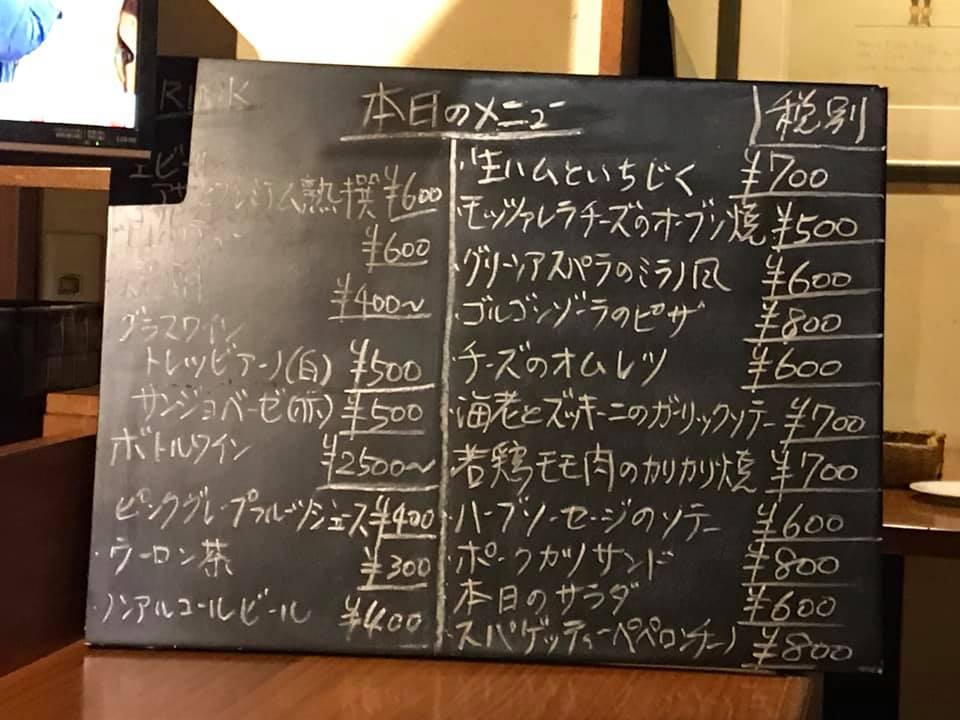 本日のメニュー
税別
RINK
エビ
熱撰 ¥600
¥600
¥400~
グラスワイン
トレッビアーノ(白) ¥500
サンジョベーゼ(赤) ¥500
ボトルワイン ¥2500~
ピンクグレープフルーツジュース ¥400
・ウーロン茶 ¥300
・ノンアルコールビール ¥400
・生ハムといちじく ¥700
・モッツァレラチーズのオーブン焼 ¥500
・グリーンアスパラのミラノ風 ¥600
・ゴルゴンゾーラのピザ ¥800
・チーズのオムレツ ¥600
・海老とズッキーニのガーリックソテー ¥700
・若鶏モモ肉のカリカリ焼 ¥700
・ハーブソーセージのソテー ¥600
・ポークカツサンド ¥800
・本日のサラダ ¥600
・スパゲッティーペペロンチーノ ¥800